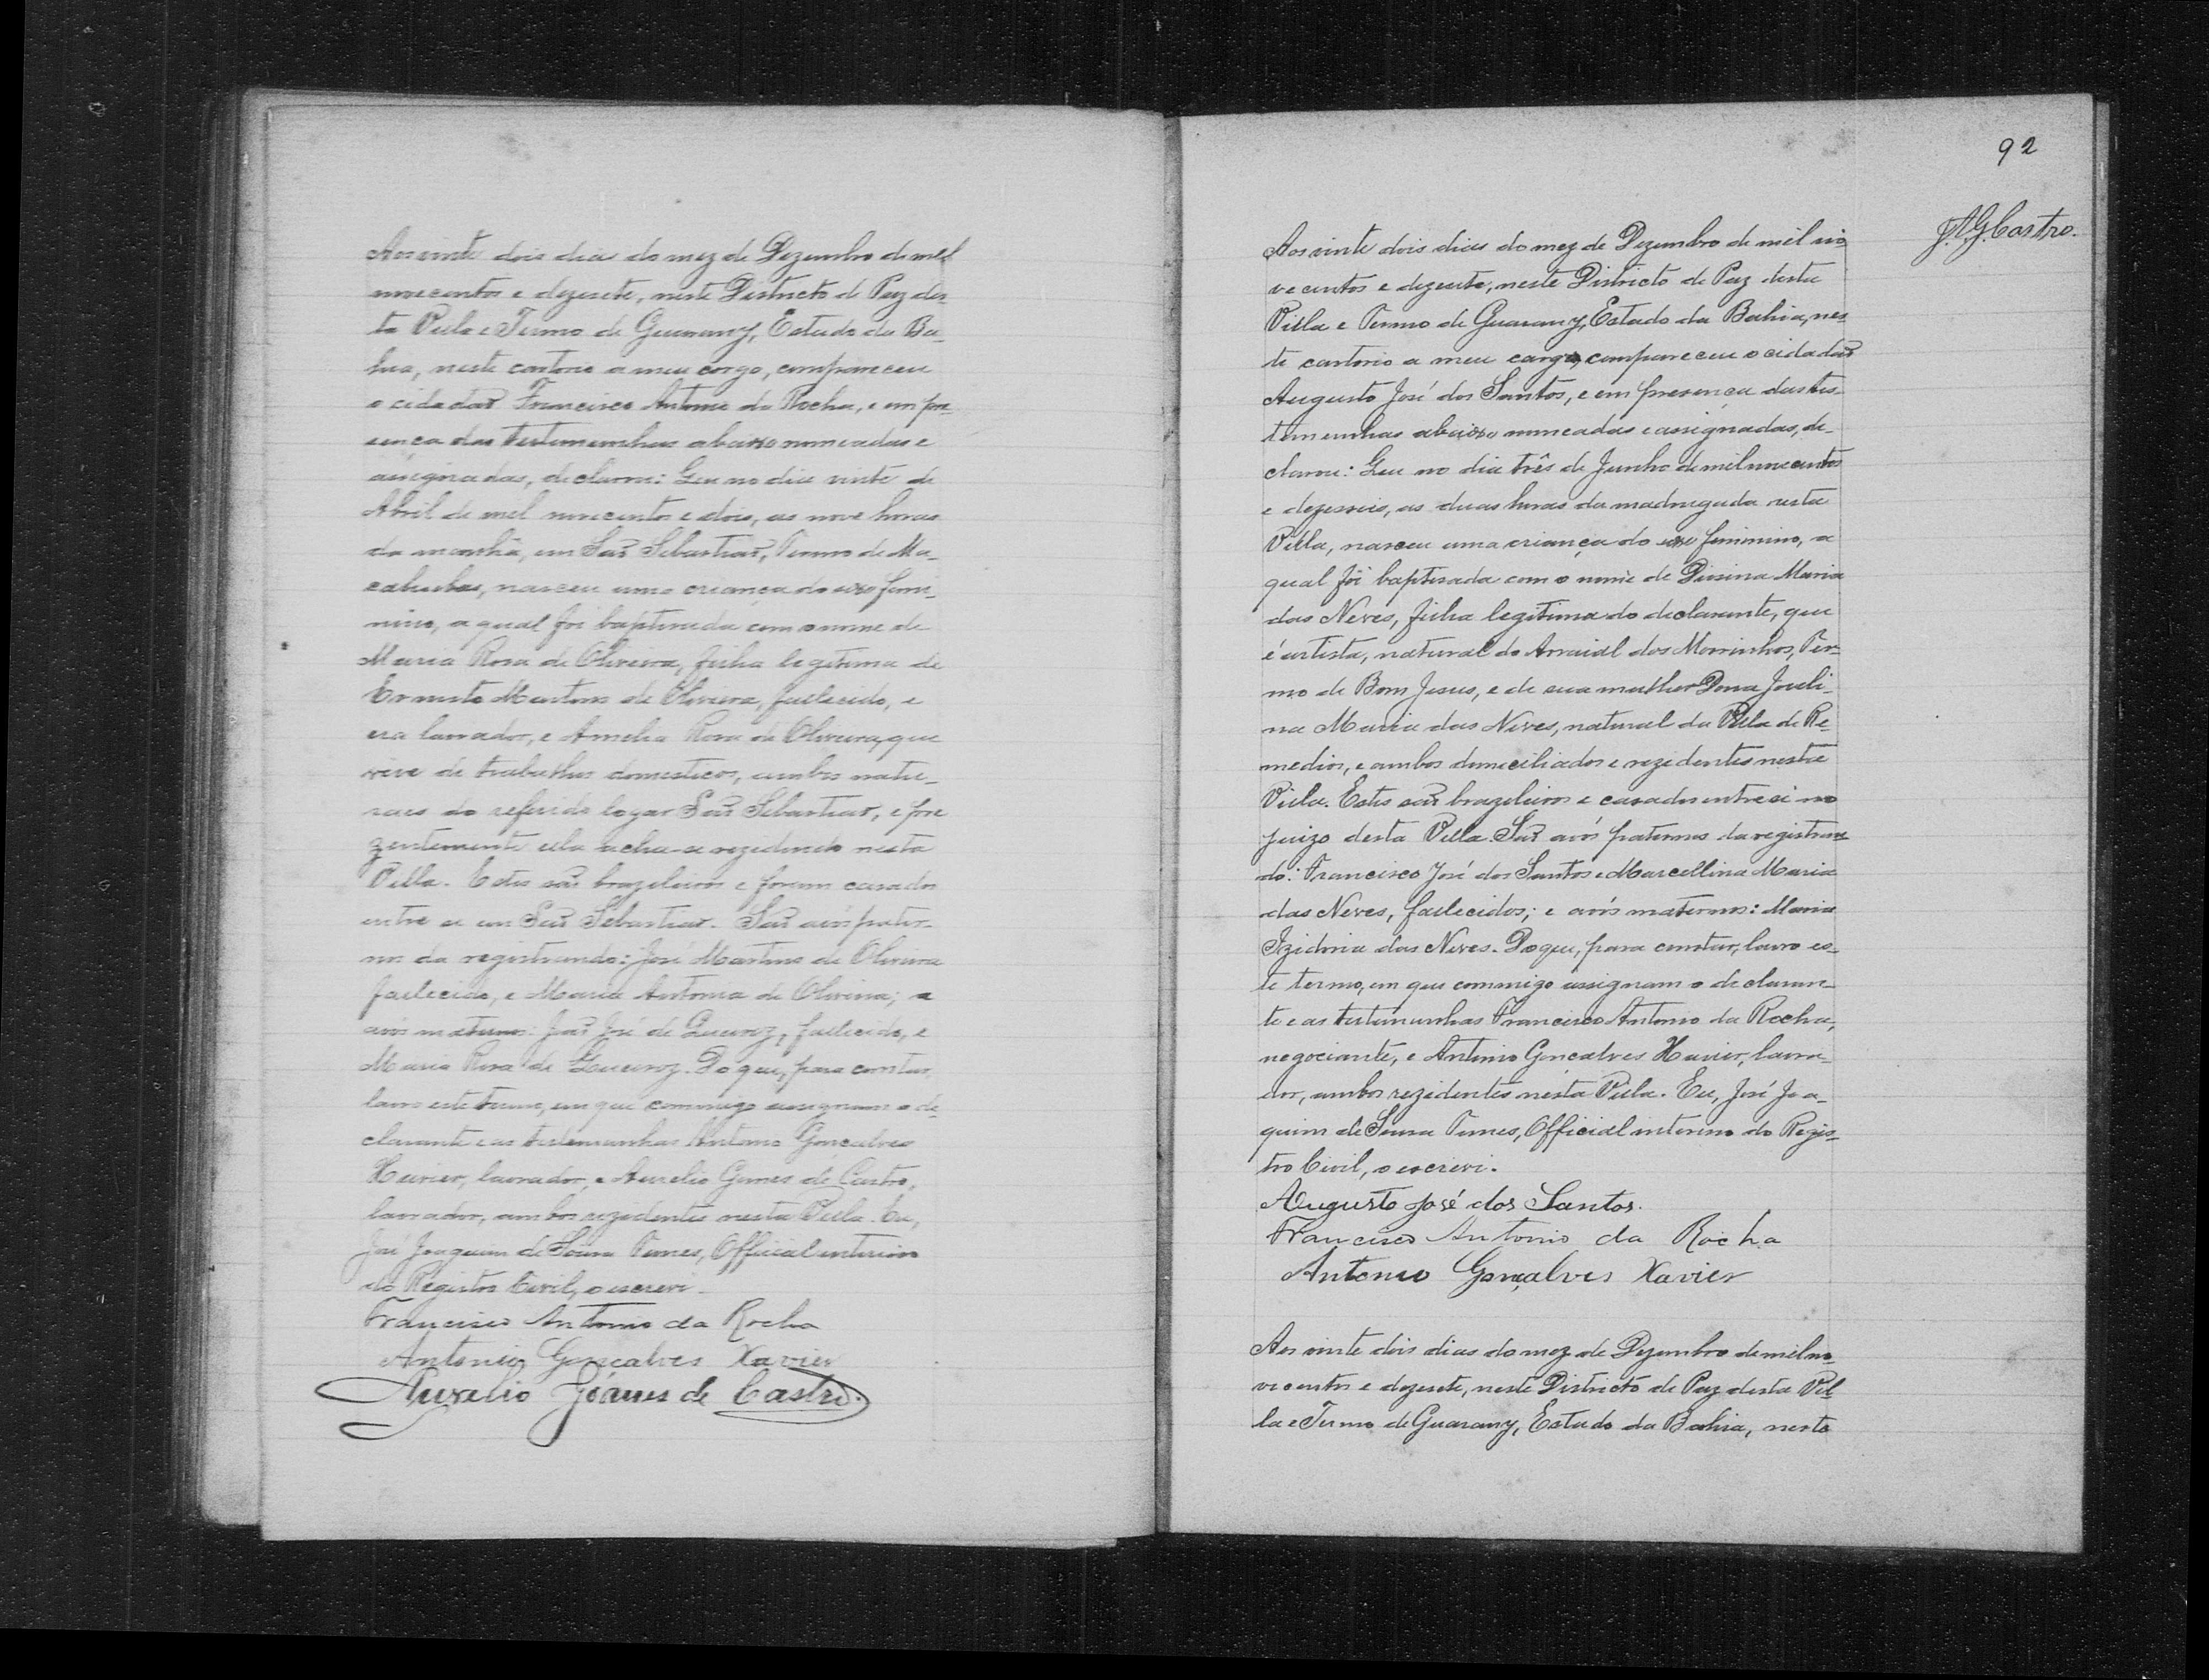 Aos vinte dois dias do mez de Dezembro de mil
novecentos e dezesete, neste Districto de Paz des
ta Villa e Termo de Guarany, Estado da Ba-
hia, neste cartorio a meu cargo, compareceu
o cidadão Francisco Antonio da Rocha, e em pre-
sença das testemunhas abaixo nomeadas e
assignadas, declarou: Que no dia vinte de
Abril de mil novecentos e dois, as nove horas
da manhã, em São Sebastião, Termo de Ma-
cahubas, nasceu uma criança do sexo femi-
nino, a qual foi baptisada com o nome de
Maria Rosa de Oliveira, filha legitima de
Ernesto Martins de Oliveira, fallecido, e
era lavrador, e Amelia Rosa de Oliveira, que
vive de trabalhos domesticos, ambos natu-
raes do referido logar São Sebastião, e pre
zentemente ella acha-se rezedindo nesta
Villa. Estes são brazileiros e foram casados
entre si em São Sebastião. São avós pater-
nos da registrando: José Martins de Oliveira
fallecido, e Maria Antonia de Oliveira; e
avós maternos: João José de Queiroz, fallecido, e
Maria Rosa de Queiroz. Do que, para constar,
lavro este termo, em que commigo assignam o de-
clarante e as testemunhas Antonio Gonçalves
Xavier, lavrador, e Aurelio Gomes de Castro,
lavrador, ambos rezedentes nesta Villa. Eu,
José Joaquim de Souza Nunes, Official interino
do Registro Civil, o escrevi.
Francisco Antonio da Rocha
Antonio Gonçalves Xavier
Aurelio Gomes de Castro.
92
J.A.G.Castro.
Aos vinte dois dias do mez de Dezembro de mil no
vecentos e dezesete, neste Districto de Paz desta
Villa e Termo de Guarany, Estado da Bahia, nes-
te cartorio a meu cargo, compareceu o cidadão
Augusto José dos Santos, e em presença das tes-
temunhas abaixo nomeadas e assignadas, de-
clarou: Que no dia três de Junho de mil novecentos
e dezesseis, as duas horas da madrugada nesta
Villa, nasceu uma criança do sexo feminino, a
qual foi baptisada com o nome de Maria
das Neves, filha legitima do declarante, que
é artista, natural do Arraial dos Morrinhos, Ter-
mo de Bom Jesus, e de sua mulher Dona Joveli-
na Maria das Neves, natural da Villa de Re-
medios, e ambos domeciliados e rezidentes nesta
Villa. Estes são brazileiros e casados entre si no
juizo desta Villa. São avós paternos da registran
do: Francisco José dos Santos e Marcellina Maria
das Neves, fallecidos; e avós maternos: Maria
Izidoria das Neves. Do que, para constar, lavro es-
te termo, em que commigo assignam o declaran-
te e as testemunhas Francisco Antonio da Rocha,
negociante, e Antonio Gonçalves Xavier, lavra-
dor, ambos rezidentes nesta Villa. Eu, José Joa-
quim de Souza Nunes, Official interino do Regis-
tro Civil, o escrevi.
Augusto José dos Santos.
Francisco Antonio da Rocha
Antonio Gonçalves Xavier
Aos vinte dois dias do mez de Dezembro de mil no-
vecentos e dezesete, neste Districto de Paz desta Vil-
la e Termo de Guarany, Estado da Bahia, neste